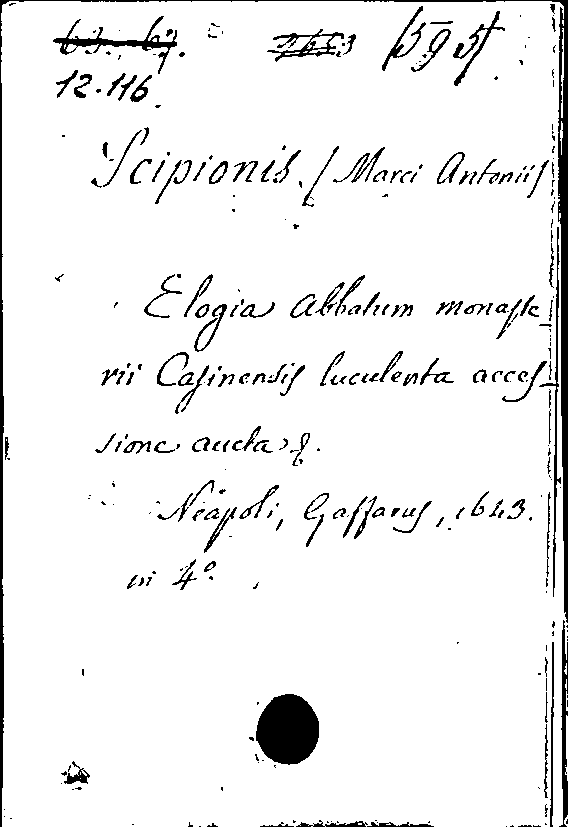 63. 67. 2653 [595]
12.116.
Scipionis. (Marci Antonii)
Elogia Abbatum monaste-
rii Casinensis luculenta acces-
sione aucta &.
Neapoli, Gaffarus, 1643.
in 4°.